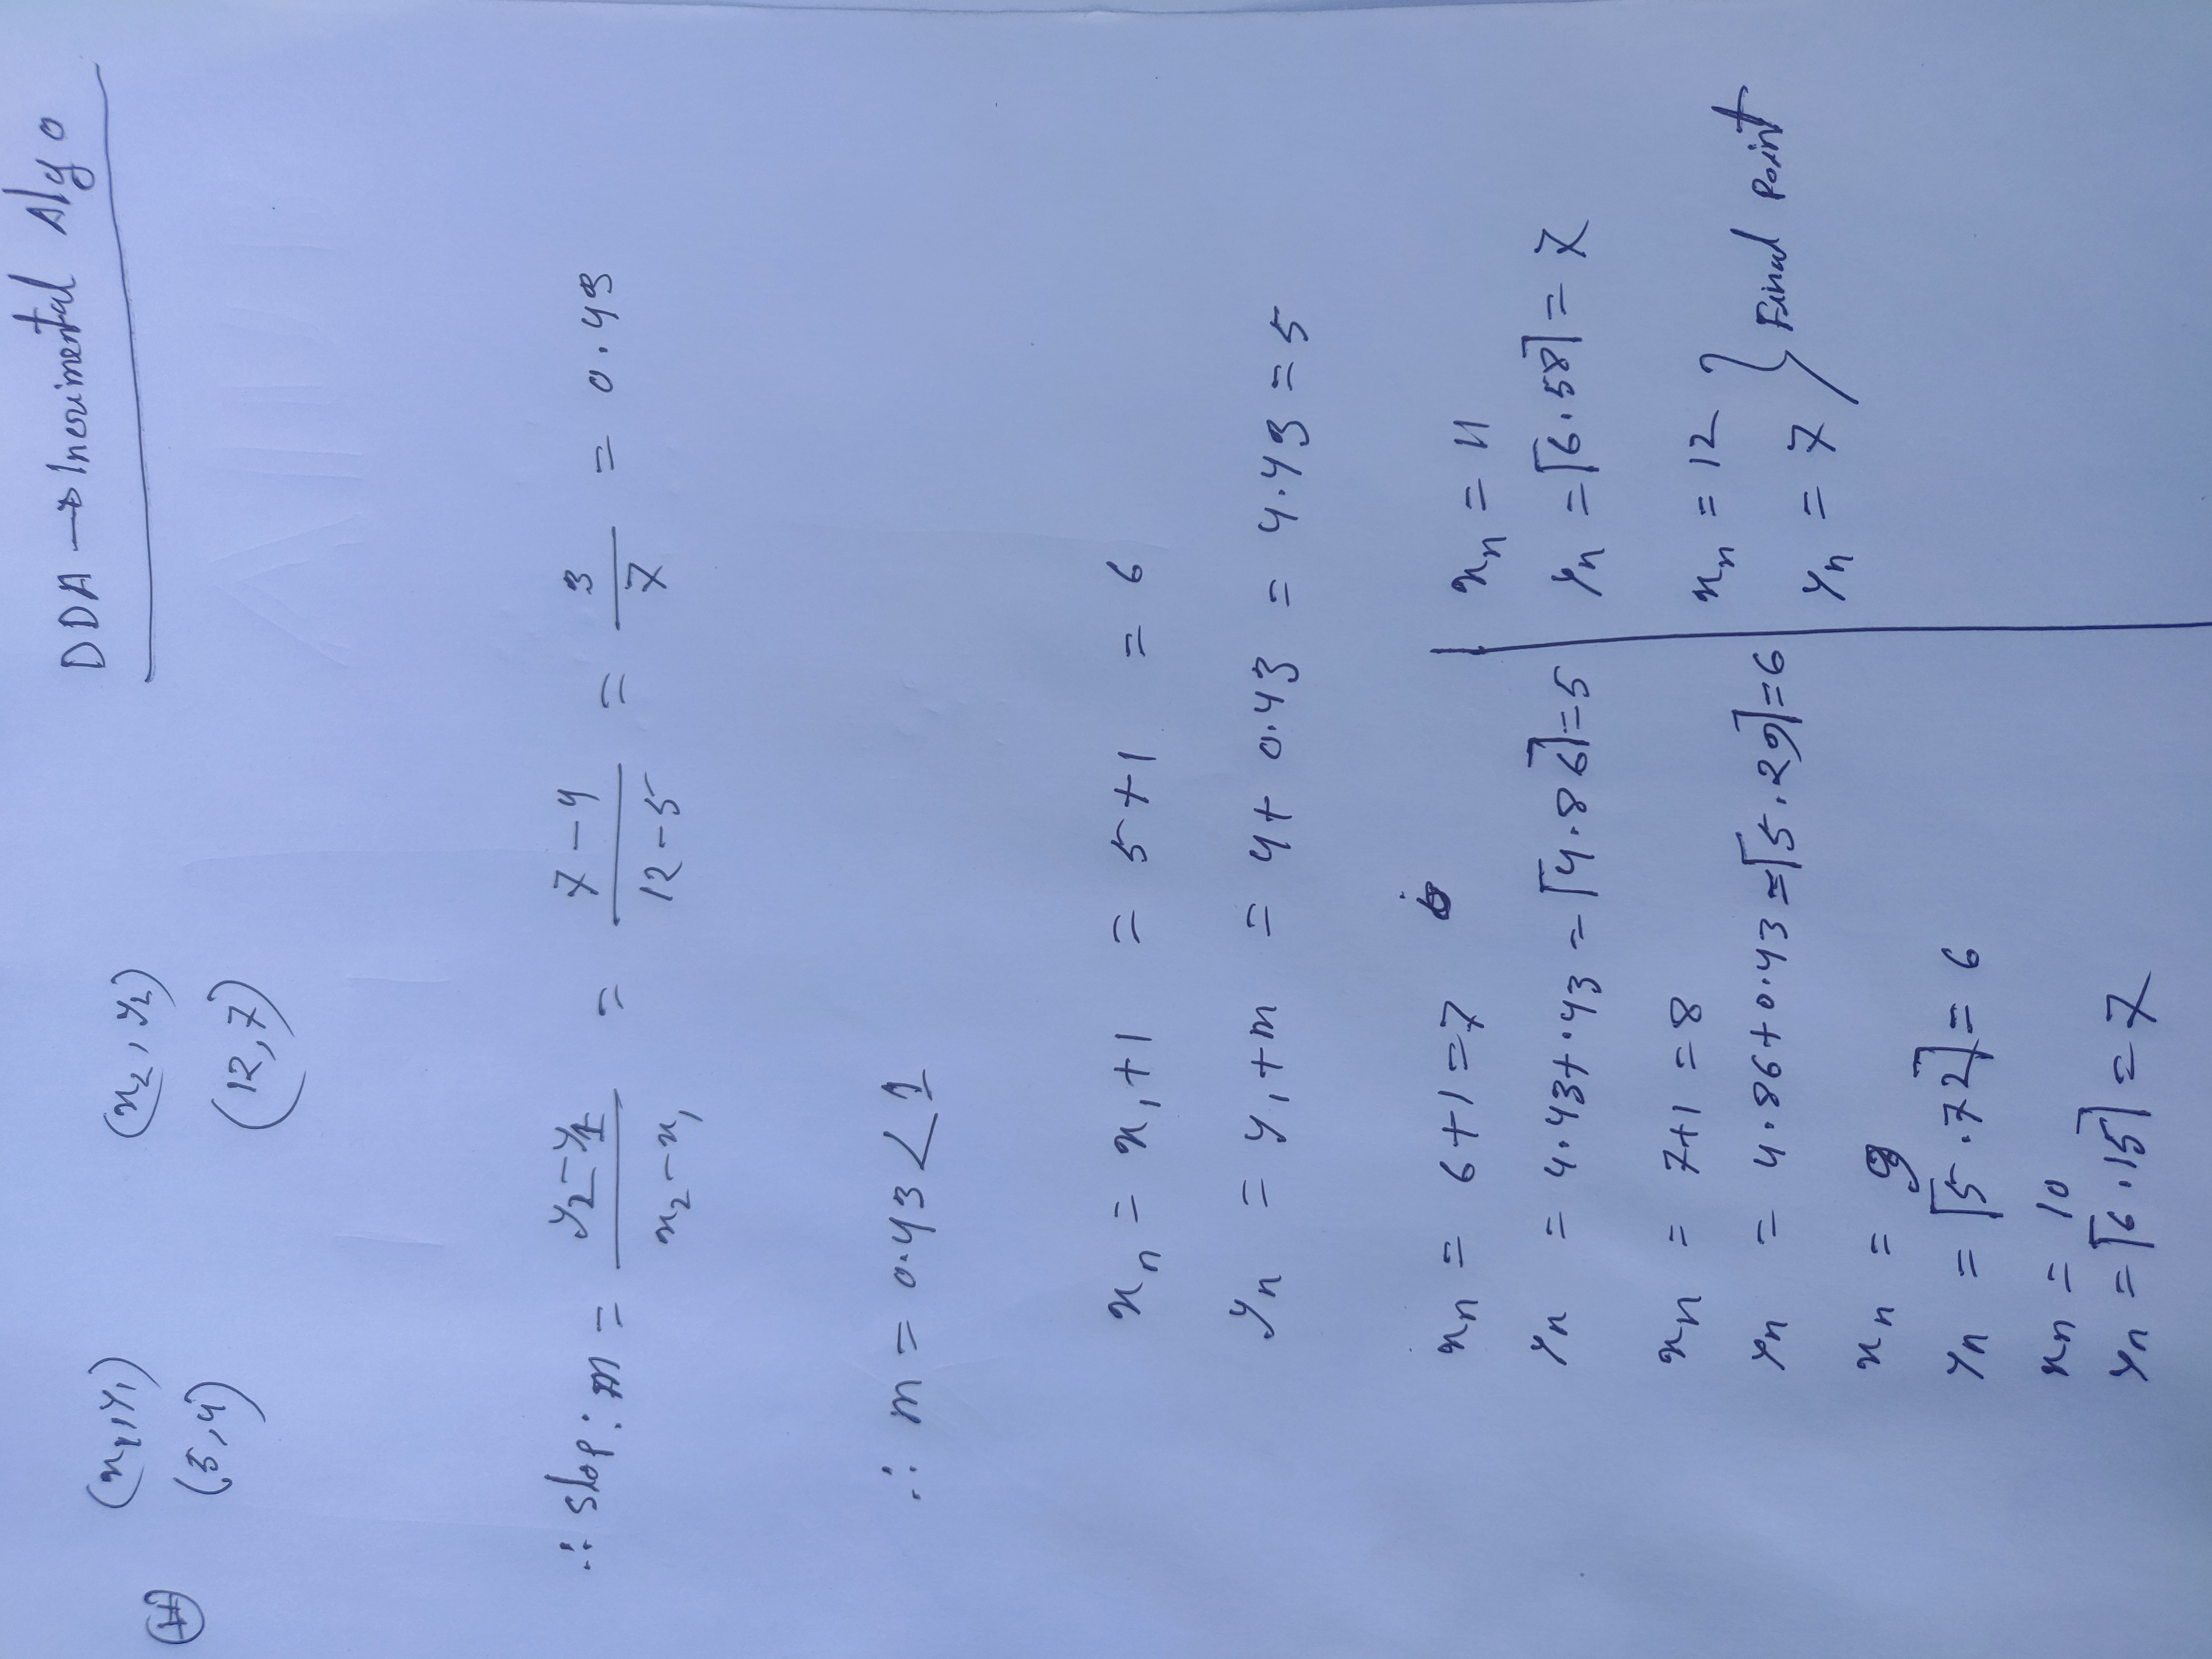 DDA → Incrimental Algo
(x₁,y₁) (x₂, y₂)
# (5,4) (12,7)
∴ slop: m = (y₂-y₁)/(x₂-x₁) = (7-4)/(12-5) = 3/7 = 0.43
∴ m = 0.43 < 1
xₙ = x₁+1 = 5+1 = 6
yₙ = y₁+m = 4+ 0.43 = 4.43 = 5
xₙ = 6+1=7
yₙ = 4.43+.43 = ⌈4.86⌉=5
xₙ = 7+1 =8
yₙ = 4.86+0.43 = ⌈5.29⌉=6
xₙ = 9
yₙ = ⌈5.72⌉= 6
xₙ = 10
yₙ = ⌈6.15⌉ = 7
xₙ = 11
yₙ = ⌈6.58⌉ = 7
xₙ = 12
yₙ = 7 } Final Point